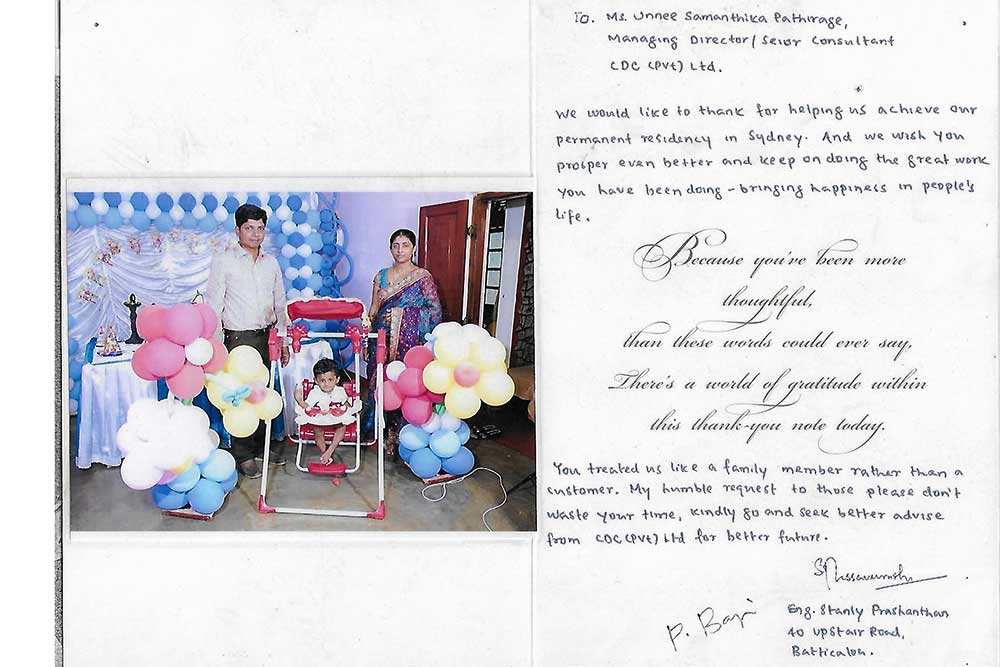 To. Ms. Unnee Samanthika Pathirage,
Managing Director/Seior Consultant
CDC (Pvt) Ltd.
We would like to thank for helping us achieve our
permanent residency in Sydney. And we wish you
prosper even better and keep on doing the great work
you have been doing - bringing happiness in people's
life.
Because you've been more
thoughtful,
than these words could ever say,
There's a world of gratitude within
this thank-you note today.
You treated us like a family member rather than a
customer. My humble request to those please don't
waste your time, kindly go and seek better advise
from CDC (Pvt) Ltd for better future.
Eng. Stanly Prashanthan
40 upstair Road,
Batticaloa.